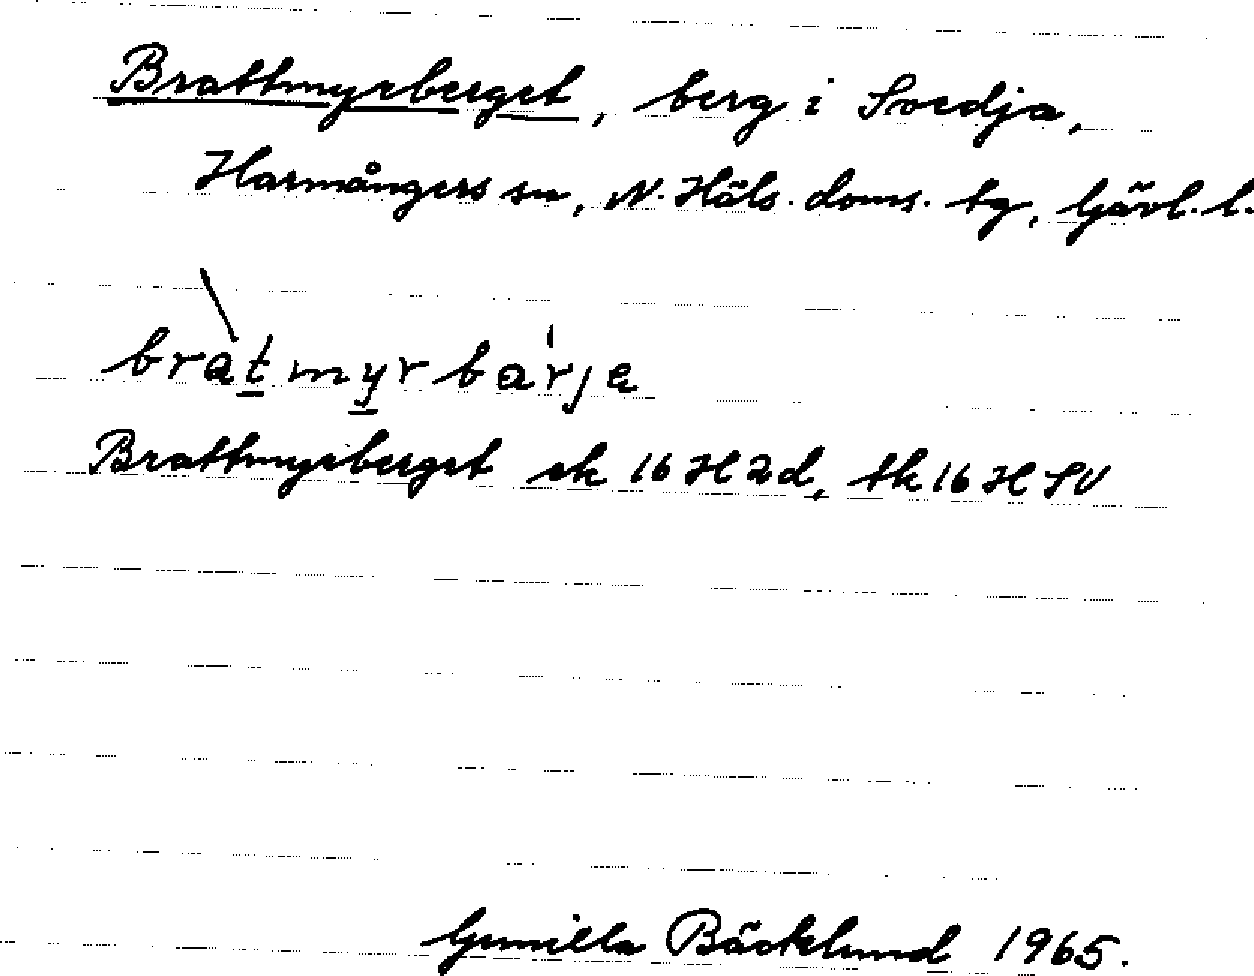 Brattmyrberget, berg i Svedja,
Harmångers sn, N. Häls. doms. tg, Gävl. l.
bratmyrbarje
Brattmyrberget ek 16 H 2d, tk 16 H SV
Gunilla Bäcklund 1965.